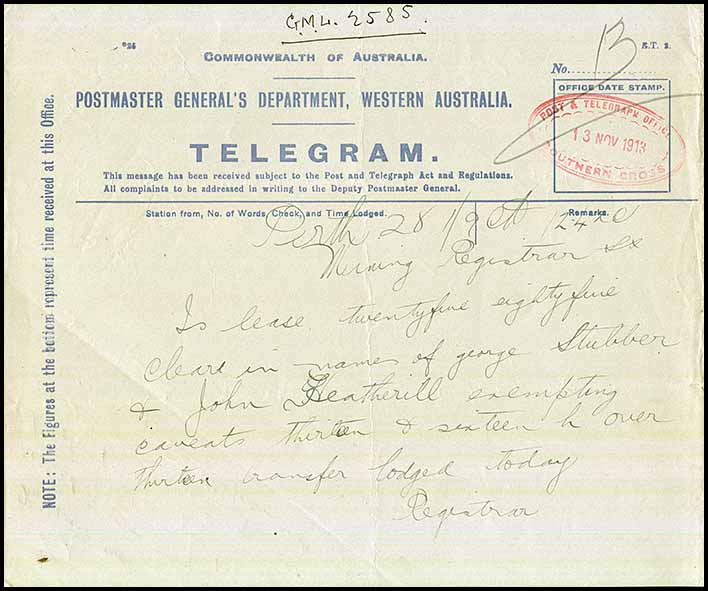 G.M.L. 2585.
*25
COMMONWEALTH OF AUSTRALIA.
No. 13
E.T. 2.
POSTMASTER GENERAL'S DEPARTMENT, WESTERN AUSTRALIA.
OFFICE DATE STAMP.
POST & TELEGRAPH OFFICE
13 NOV 1913
SOUTHERN CROSS
TELEGRAM.
This message has been received subject to the Post and Telegraph Act and Regulations.
All complaints to be addressed in writing to the Deputy Postmaster General.
Station from, No. of Words, Check, and Time Lodged.
Remarks.
Perth 28
Mining Registrar Sx
Is lease twentyfive eightyfive
clear in names of george Stubber
& John Heatherill exempting
caveats thirteen & sixteen h over
thirteen transfer lodged today
Registrar
NOTE: The Figures at the bottom represent time received at this Office.